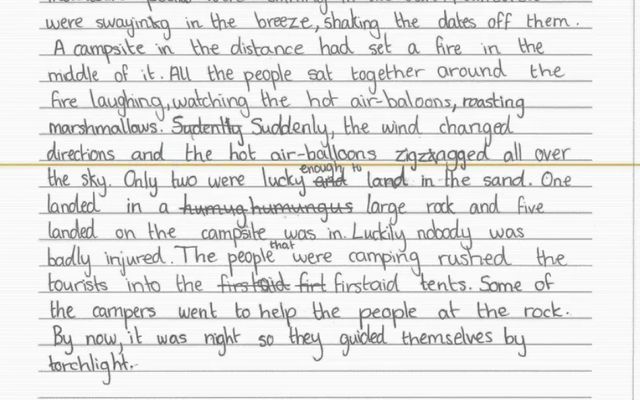 were swayinkg in the breeze, shaking the dates off them.
A campsite in the distance had set a fire in the
middle of it. All the people sat together around the
fire laughing, watching the hot air-baloons, roasting
marshmallows. Suddenly, the wind changed
directions and the hot air-balloons zigzagged all over
the sky. Only two were lucky enough to land in the sand. One
landed in a humug humungus large rock and five
landed on the campsite was in. Luckily nobody was
badly injured. The people that were camping rushed the
tourists into the firstaid firt firstaid tents. Some of
the campers went to help the people at the rock.
By now, it was night so they guided themselves by
torchlight.